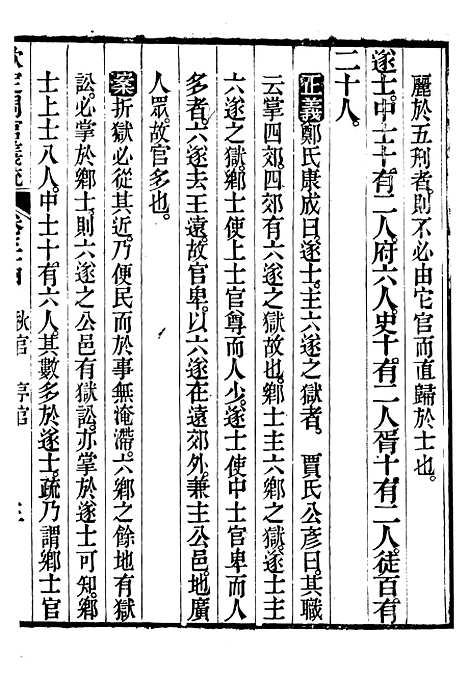 麗於五刑者則不必由它官而直歸於士也
遂士中士十有二人府六人史十有二人胥十有二人徒百有
二十人
正義鄭氏康成曰遂士主六遂之獄者 賈氏公彥曰其職
云掌四郊四郊有六遂之獄故也鄉士主六鄉之獄遂士主
六遂之獄鄉士使上士官尊而人少遂士使中士官卑而人
多者六遂去王遠故官卑以六遂在遠郊外兼主公邑地廣
人眾故官多也
案折獄必從其近乃便民而於事無淹滯六鄉之餘地有獄
訟必掌於鄉士則六遂之公邑有獄訟亦掌於遂士可知鄉
士上士八人中士十有六人其數多於遂士疏乃謂鄉士官
欽定周官義疏 卷三十四 秋官 序官 三